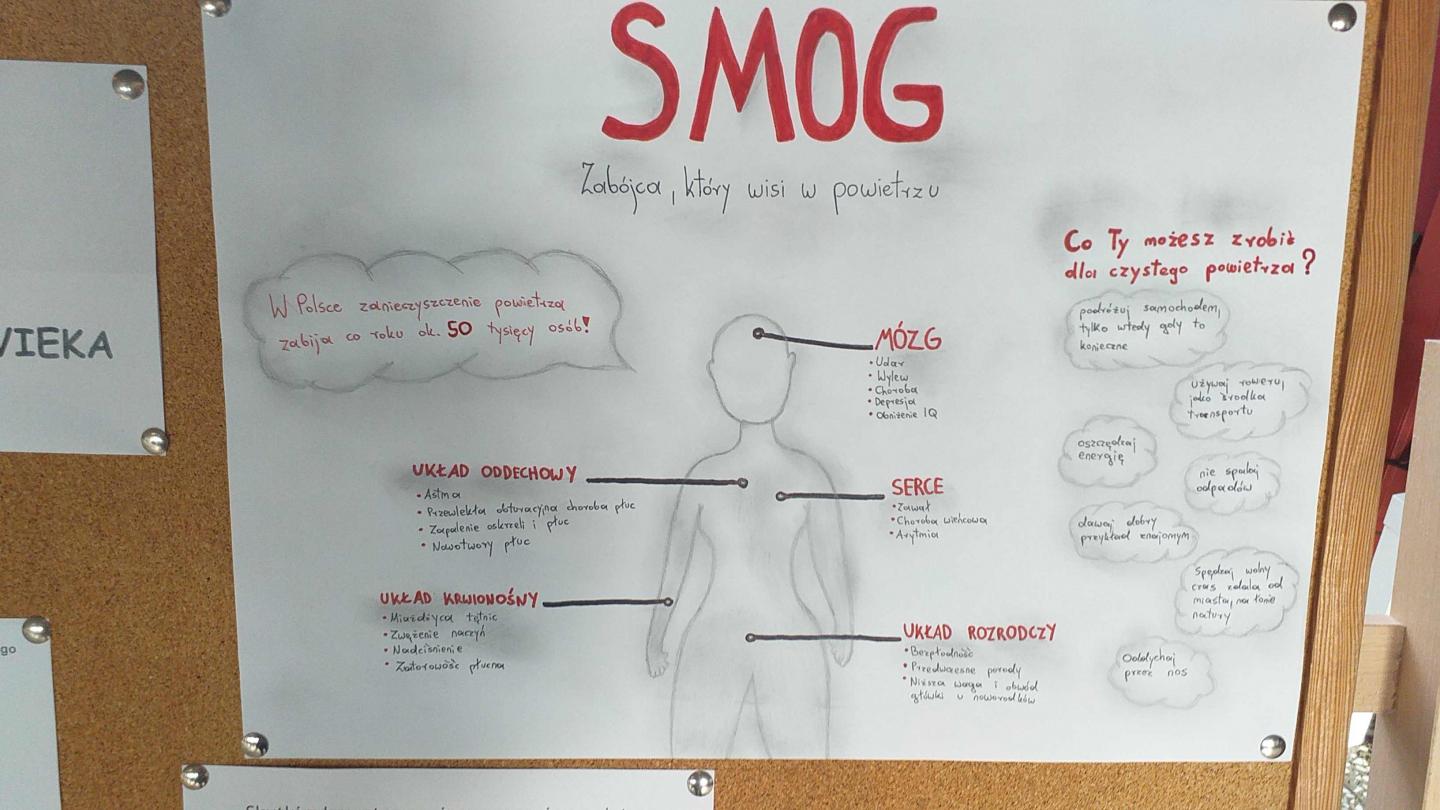 SMOG
Zabójca, który wisi w powietrzu
W Polsce zanieczyszczenie powietrza
zabija co roku ok. 50 tysięcy osób!
MÓZG
• Udar
• Wylew
• Choroba
• Depresja
• Obniżenie IQ
UKŁAD ODDECHOWY
• Astma
• Przewlekła obturacyjna choroba płuc
• Zapalenie oskrzeli i płuc
• Nowotwory płuc
SERCE
• Zawał
• Choroba wieńcowa
• Arytmia
UKŁAD KRWIONOŚNY
• Miażdżyca tętnic
• Zwężenie naczyń
• Nadciśnienie
• Zatorowość płucna
UKŁAD ROZRODCZY
• Bezpłodność
• Przedwczesne porody
• Niższa waga i obwód
główki u noworodków
Co Ty możesz zrobić
dla czystego powietrza?
podróżuj samochodem,
tylko wtedy gdy to
konieczne
używaj roweru,
jako środka
transportu
oszczędzaj
energię
nie spalaj
odpadów
dawaj dobry
przykład znajomym
Spędzaj wolny
czas zdala od
miasta, na łonie
natury
Oddychaj
przez nos
WIEKA
go